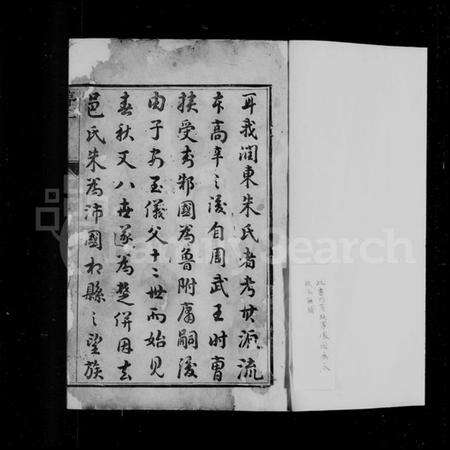 耳我潤東朱氏者考其源流
本高辛之後自周武王时曹
挾受封邾國為魯附庸嗣後
由子安至儀父十二世而始見
春秋又八世遂為楚併因去
邑氏朱為沛國相縣之望族
序
FamilySearch